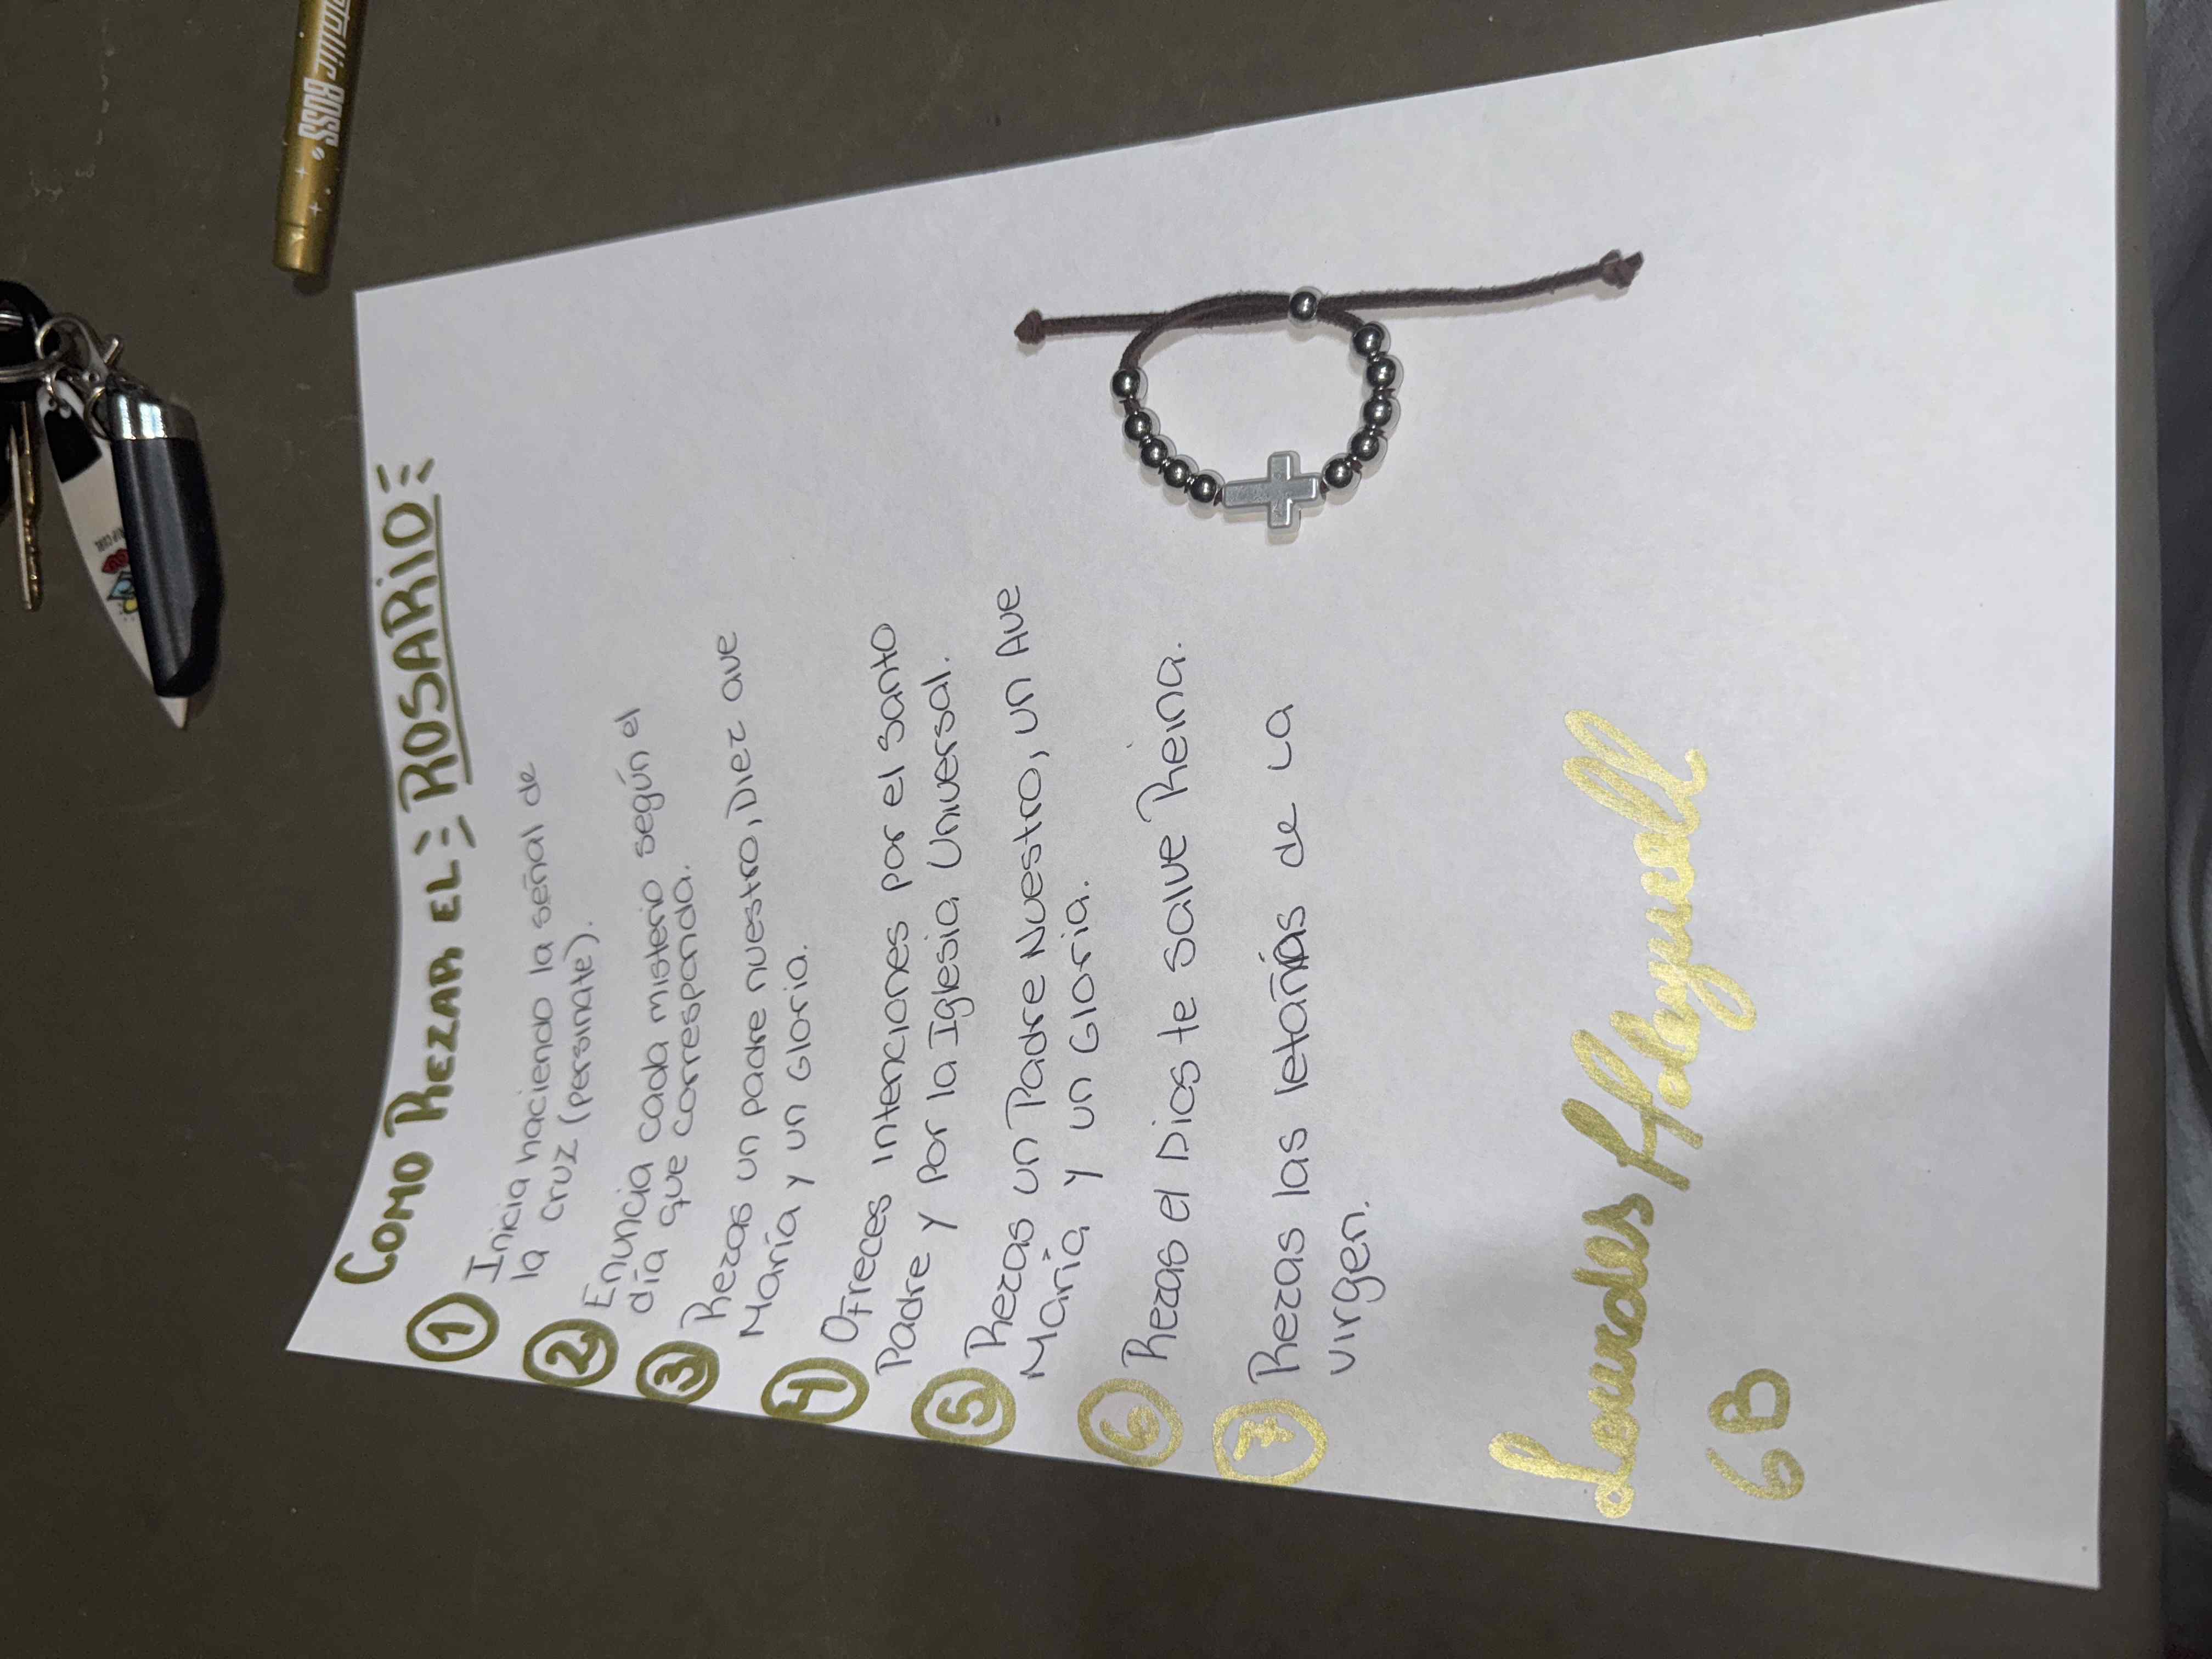 COMO REZAR EL ROSARIO
1 Inicia haciendo la señal de
la cruz (persinate).
2 Enuncia cada misterio según el
día que corresponda.
3 Rezas un padre nuestro, Diez ave
María y un Gloria.
4 Ofreces intenciones por el santo
Padre y por la Iglesia Universal.
5 Rezas un Padre Nuestro, un Ave
María y un Gloria.
6 Rezas el Dios te salve Reina.
7 Rezas las letanías de La
virgen.
Lourdes
6B
BOSS